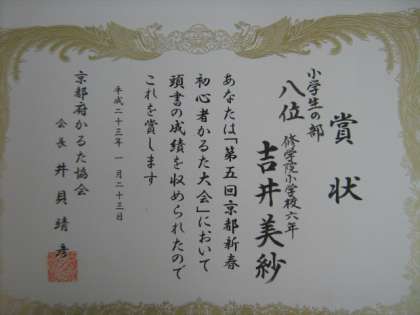 賞状
小学生の部
八位
修学院小学校六年
吉井美紗
あなたは「第五回京都新春
初心者かるた大会」において
頭書の成績を収められたので
これを賞します
平成二十三年一月二十三日
京都府かるた協会
会長 井貝靖彦